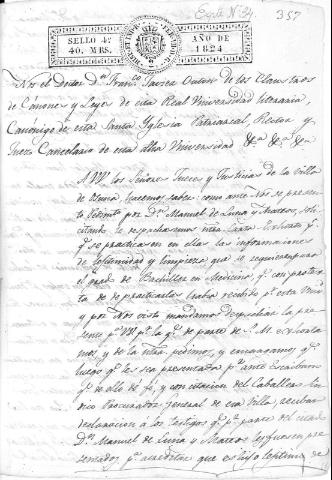 357
SELLO 4º
40. MRS.
AÑO DE
1824
Nos el Doctor Dn. Franco. Javier Outon de los Claustros
de Cánones y Leyes de esta Real Universidad literaria,
Canónigo de esta Santa Yglesia Patriarcal, Rector y
Juez Cancelario de esta dha Universidad &a. &a. &a.
A VV. los Señores Jueces y Justicias de la Villa
de Osuna, hacemos saber: como ante Nos se presentó
Pedimto. por Dn. Manuel de Luna y Mateos, soli-
citando le despacharamos ntra. Carta Exhorto pa.
qe. se practicasen en ella las informaciones
de Legitimidad y limpieza que se requieren para
el grado de Bachiller en Medicina, qe. con protex-
ta de de practicarla había recibido pr. esta Univd.
y por Nos visto mandamos despachar la pre-
sente pa. VV. pr. la qe. de parte de S. M. exhorta-
mos, y de la ntra. pedimos, y encargamos, qe.
luego qe. les sea presentada pr. ante Escribano
qe. de ello dé fe, y con citacion del Caballero Sin-
dico Procurador General de esa Villa, reciban
declaracion a los testigos qe. pr. parte del citado
Dn. Manuel de Luna y Mateos les fuesen pre-
sentados pa. acreditar que es hijo legitimo de